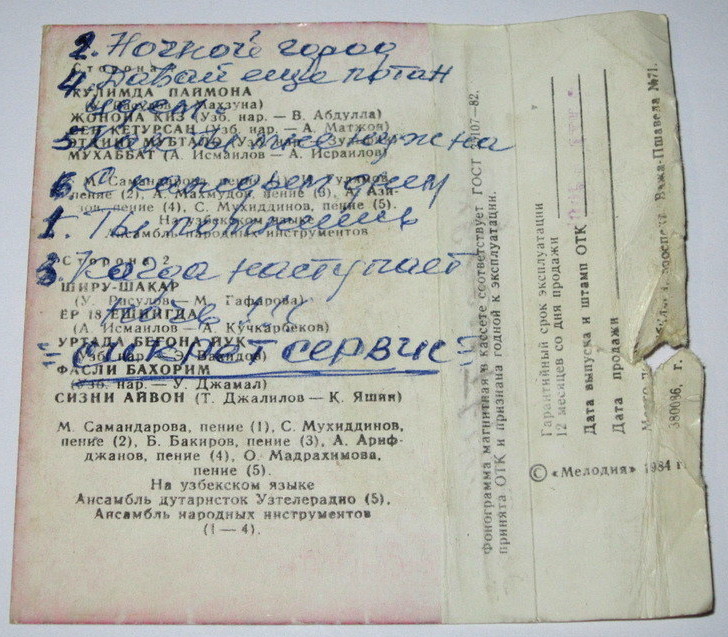 2. Ночной город
Сторона
4. Давай ещё потан
КУЛИМДА ПАЙМОНА
цуем
ЖОНОНА КИЗ (Узб. нар. — В. Абдулла)
СЕН КЕТУРСАН (Узб. нар. — А. Матжон)
5. мне нужна
МУХАББАТ (А. Исмаилов — А. Исраилов)
6.
М. Самандарова, пение (1),
пение (2), А. Махмудов, пение (3), А. Ази-
зов, пение (4), С. Мухиддинов, пение (5).
На узбекском языке
1. Ты
Ансамбль народных инструментов
Сторона 2
3. Когда наступает
ШИРУ-ШАКАР
(У. Расулов — М. Гафарова)
ЁР 18 ЕШИНГДА
(А. Исмаилов — А. Кучкарбеков)
УРТАДА БЕГОНА ЙУК
(Узб. нар. — Э. Вахидов)
= Сикрет сервис =
ФАСЛИ БАХОРИМ
(Узб. нар. — У. Джамал)
СИЗНИ АЙВОН (Т. Джалилов — К. Яшин)
М. Самандарова, пение (1), С. Мухиддинов,
пение (2), Б. Бакиров, пение (3), А. Ариф-
джанов, пение (4), О. Мадрахимова,
пение (5).
На узбекском языке
Ансамбль дутаристок Узтелерадио (5),
Ансамбль народных инструментов
(1—4).
Фонограмма магнитная в кассете соответствует ГОСТ 107—82.
принята ОТК и признана годной к эксплуатации.
Гарантийный срок эксплуатации
12 месяцев со дня продажи
Дата выпуска и штамп ОТК
Дата продажи
проспект Важа-Пшавела №71.
380086, г.
© «Мелодия» 1984 г.